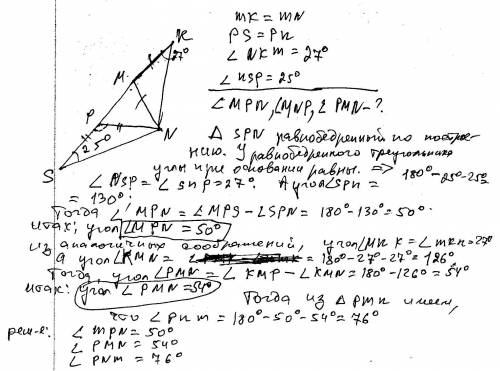 MK = MN
PS = PN
∠ NKM = 27°
∠ NSP = 25°
∠MPN, ∠MNP, ∠ PMN - ?
K
27°
M
P
25°
N
S
Δ SPN равнобедренный по построе-
нию. У равнобедренного треугольника
углы при основании равны. => 180°-25-25=
∠ NSP = ∠ SNP = 27°. А угол ∠SPN =
= 130°.
Тогда ∠ MPN = ∠MPS - ∠SPN = 180°-130° = 50°.
итак: угол ∠MPN = 50°
из аналогичных соображений, угол ∠MNK = ∠MKN = 27°
А угол ∠KMN = 180°-27-27° = 126°
Тогда, угол ∠PMN = ∠ KMP - ∠KMN = 180°-126° = 54°
итак: угол ∠ PMN = 54°
Тогда из Δ PMN имеем,
что ∠ PNM = 180°-50°-54° = 76°
реш-е: ∠ MPN = 50°
∠ PMN = 54°
∠ PNM = 76°